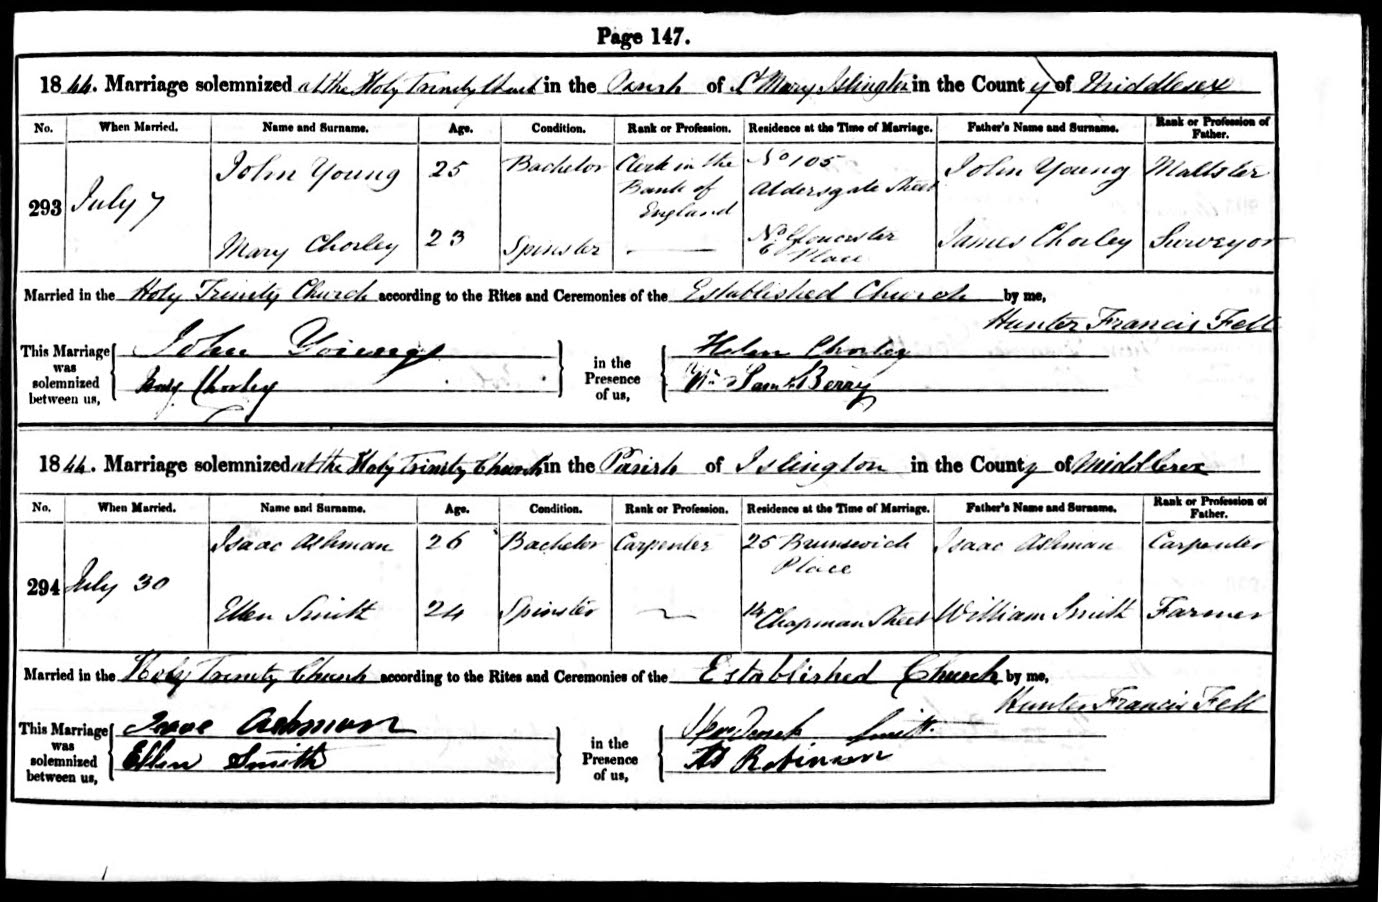 Page 147.
1844. Marriage solemnized at the Holy Trinity Church in the Parish of St Mary Islington in the County of Middlesex
No. When Married. Name and Surname. Age. Condition. Rank or Profession. Residence at the Time of Marriage. Father's Name and Surname. Rank or Profession of Father.
293 July 7 John Young 25 Bachelor Clerk in the Bank of England No 105 Aldersgate Street John Young Maltster
Mary Chorley 23 Spinster — No 6 Gloucester Place James Chorley Surveyor
Married in the Holy Trinity Church according to the Rites and Ceremonies of the Established Church by me,
Hunter Francis Fell
This Marriage was solemnized between us, John Young Mary Chorley in the Presence of us, Helen Chorley Wm Saml Berry
1844. Marriage solemnized at the Holy Trinity Church in the Parish of Islington in the County of Middlesex
No. When Married. Name and Surname. Age. Condition. Rank or Profession. Residence at the Time of Marriage. Father's Name and Surname. Rank or Profession of Father.
294 July 30 Isaac Ashman 26 Bachelor Carpenter 25 Brunswick Place Isaac Ashman Carpenter
Ellen Smith 24 Spinster — 14 Chapman Street William Smith Farmer
Married in the Holy Trinity Church according to the Rites and Ceremonies of the Established Church by me,
Hunter Francis Fell
This Marriage was solemnized between us, Isaac Ashman Ellen Smith in the Presence of us, Smith Robinson